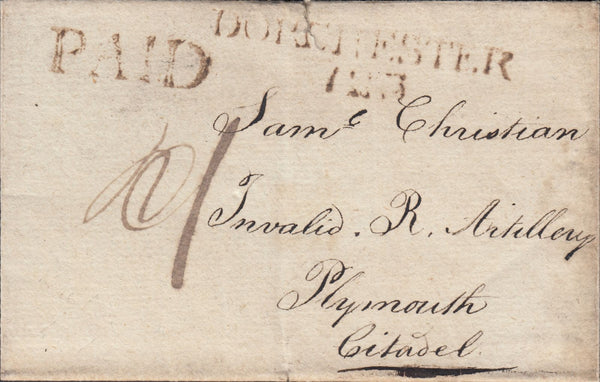 PAID
DORCHESTER
123
Pd 1
Sam.c Christian
Invalid. R. Artillery
Plymouth
Citadel.